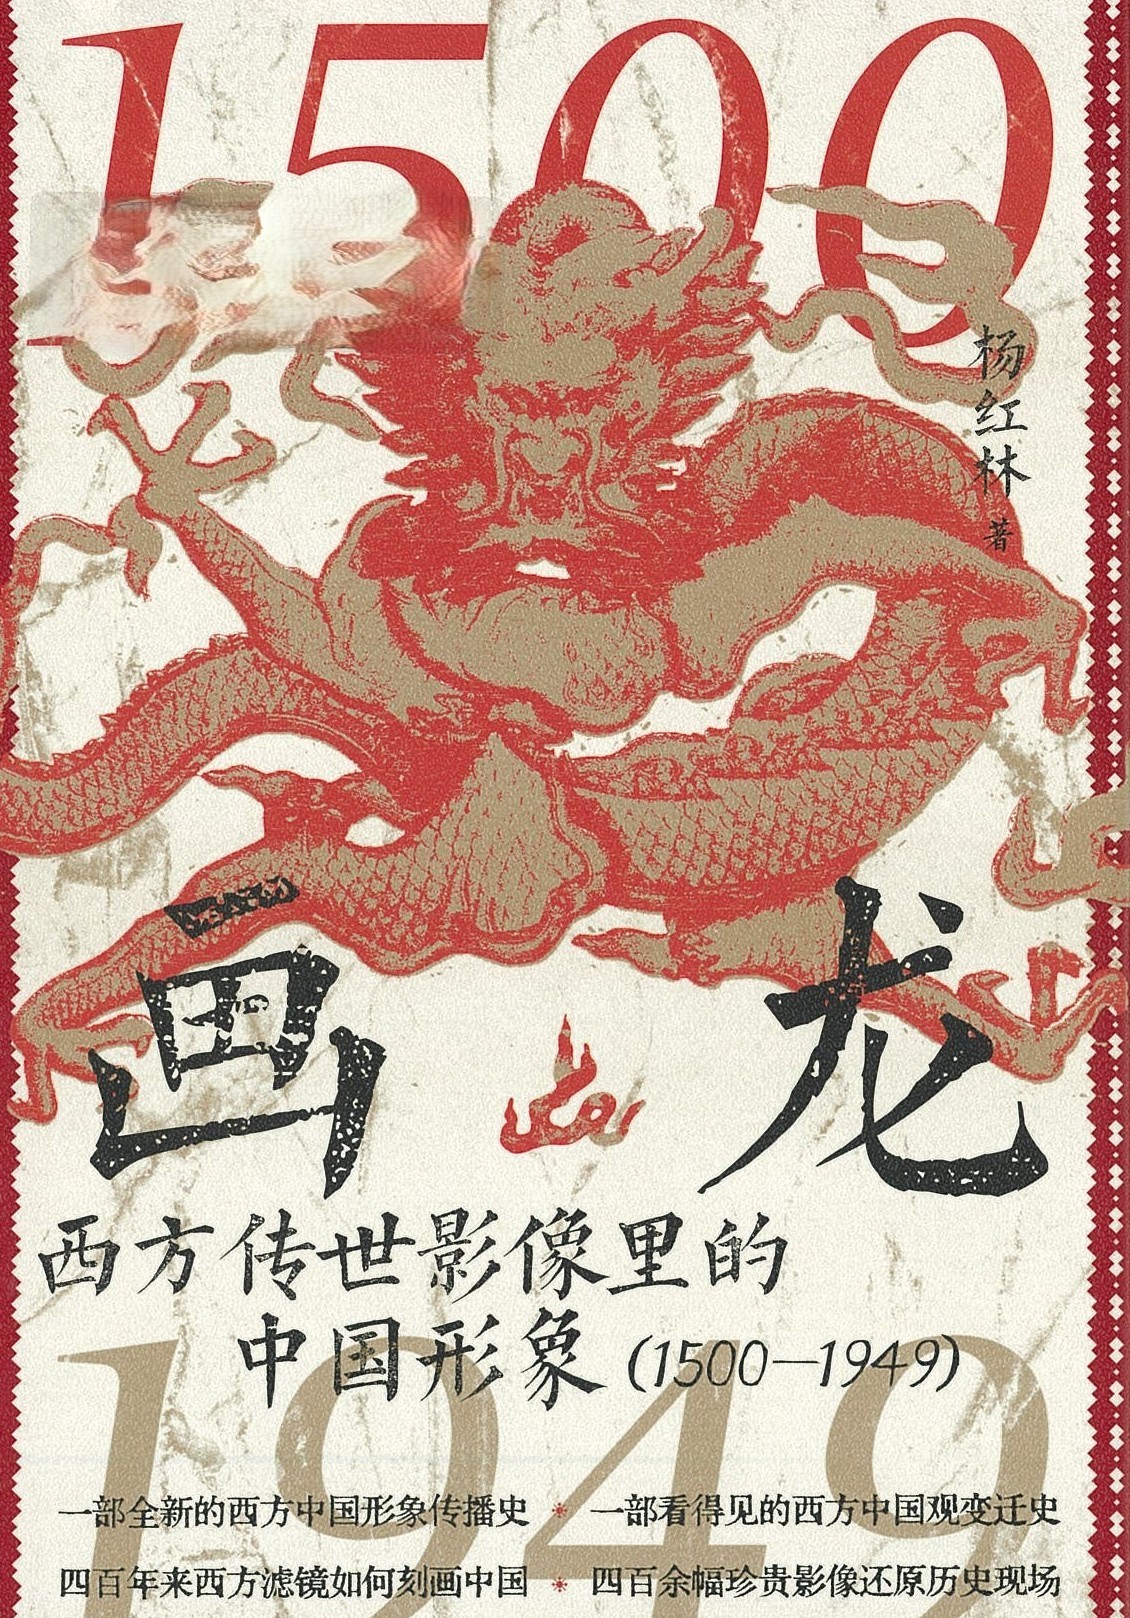 1500
杨红林 著
画龙
西方传世影像里的
中国形象(1500—1949)
1949
一部全新的西方中国形象传播史 一部看得见的西方中国观变迁史
四百年来西方滤镜如何刻画中国 四百余幅珍贵影像还原历史现场